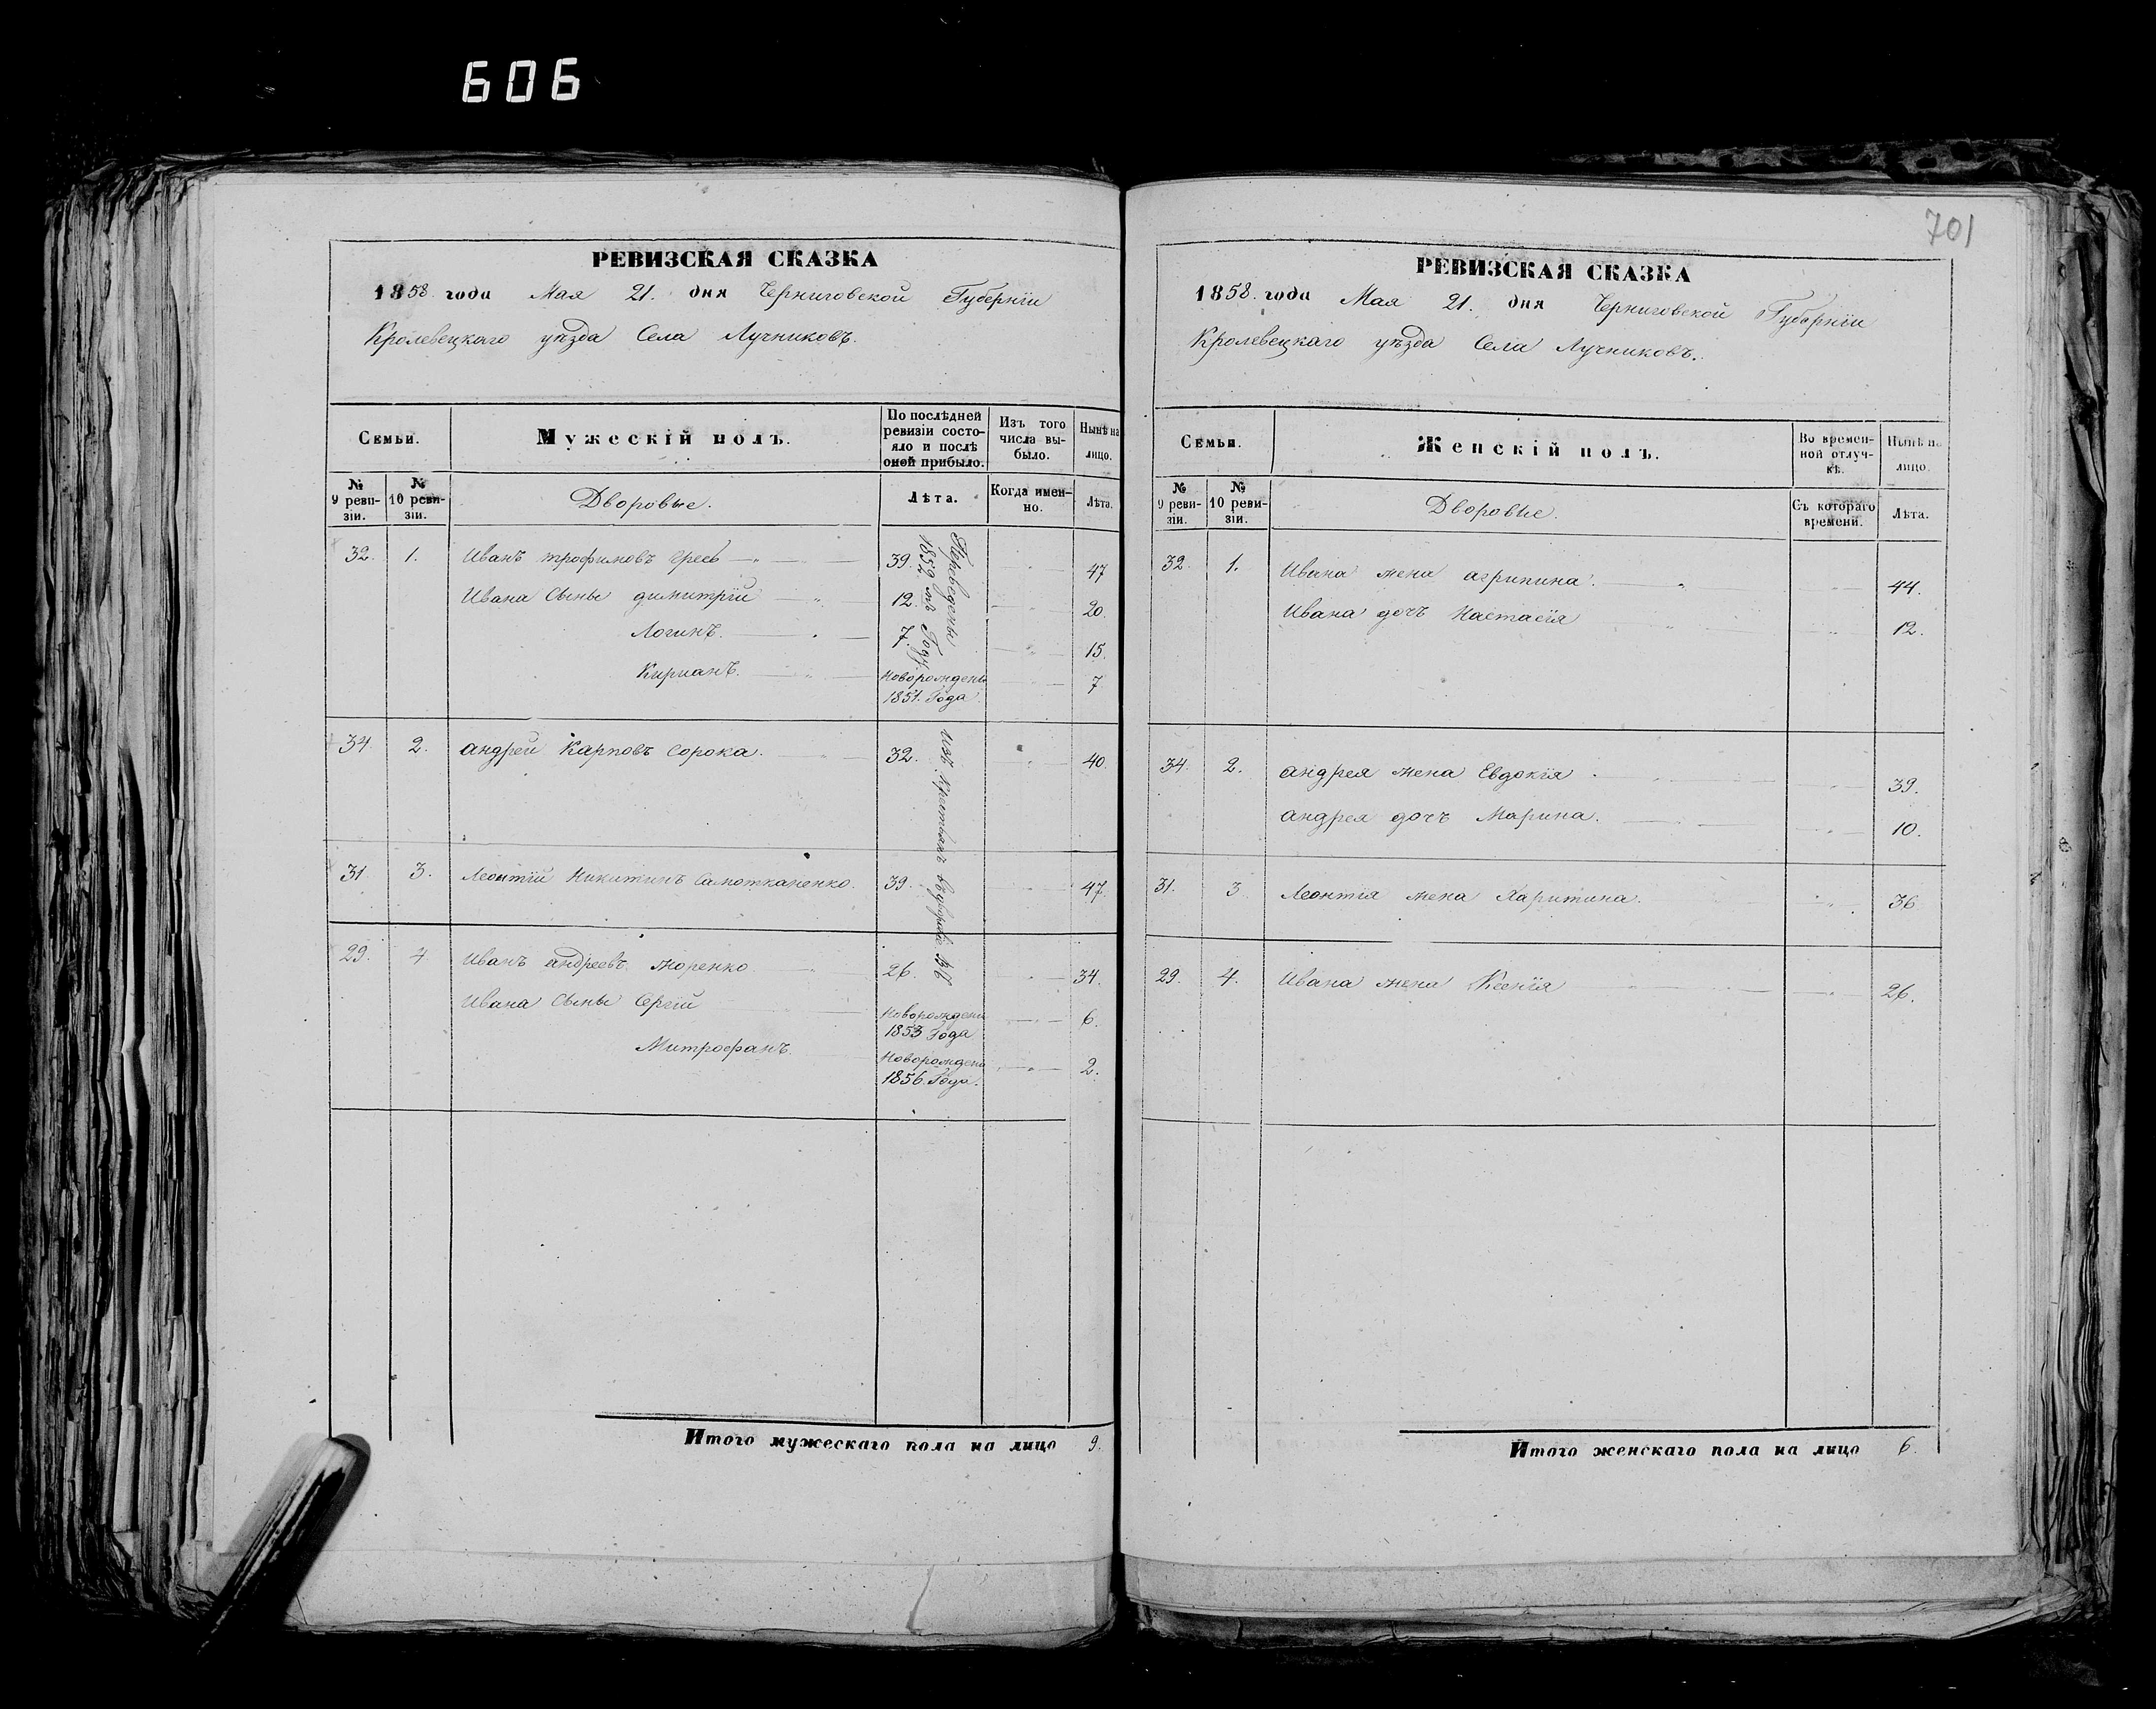 606
701
РЕВИЗСКАЯ СКАЗКА
1858 года Мая 21. дня Черниговской Губерніи
Кролевецкаго уѣзда Села Лучниковъ.
Семьи.
Мужескій полъ.
По послѣдней ревизіи состояло и послѣ оной прибыло.
Изъ того числа выбыло.
Нынѣ на лицо.
№ 9 ревизіи.
№ 10 ревизіи.
Дворовые.
Лѣта.
Когда именно.
Лѣта.
32. 1. Иванъ трофимовъ 39. 47
Ивана Сыны димитрій 12. 20.
Логинъ. 7. 15.
Киріанъ. Новорожденъ 1851. Года 7
34. 2. андрей Карповъ Сорока. 32. 40.
31. 3. Леонтій Никитинъ Самотканенко. 39. 47.
29. 4. Иванъ андреевъ 26. 34.
Ивана Сыны Сергій Новорожденъ 1853 Года 6.
Митрофанъ. Новорожденъ 1856. Года. 2.
Переведены въ 1852 мъ Году.
изъ Крестьянъ
Итого мужескаго пола на лицо 9.
РЕВИЗСКАЯ СКАЗКА
1858. года Мая 21. дня Черниговской Губерніи
Кролевецкаго уѣзда Села Лучниковъ.
Семьи.
Женскій полъ.
Во временной отлучкѣ.
Нынѣ на лицо.
№ 9 ревизіи.
№ 10 ревизіи.
Дворовые.
Съ котораго времени.
Лѣта.
32. 1. Ивана жена агрипина. 44.
Ивана дочъ Настасія 12.
34. 2. андрея жена Евдокія 39.
андрея дочъ Марина. 10.
31. 3 Леонтія жена Харитина. 36
29. 4. Ивана жена Ксенія 26.
Итого женскаго пола на лицо 6.